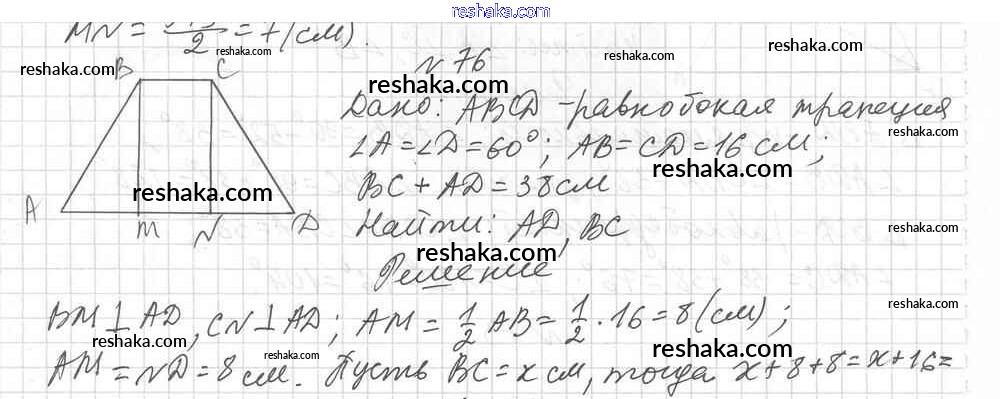 reshaka.com
MN = /2 = 7 (см).
№ 76
B C
A M N D
Дано: ABCD - равнобокая трапеция
∠A = ∠D = 60°; AB = CD = 16 см;
BC + AD = 38 см
Найти: AD, BC
Решение
BM ⊥ AD, CN ⊥ AD; AM = 1/2 AB = 1/2 · 16 = 8 (см);
AM = ND = 8 см. Пусть BC = x см, тогда x + 8 + 8 = x + 16 =
reshaka.com
reshaka.com
reshaka.com
reshaka.com
reshaka.com
reshaka.com
reshaka.com
reshaka.com
reshaka.com
reshaka.com
reshaka.com
reshaka.com
reshaka.com
reshaka.com